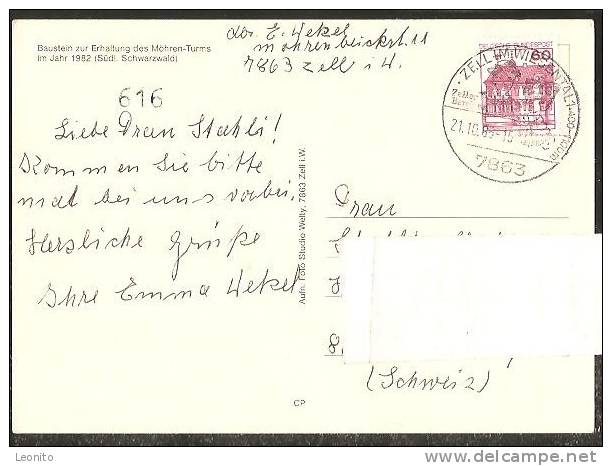 Baustein zur Erhaltung des Möhren-Turms
im Jahr 1982 (Südl. Schwarzwald)
7863 Zell i. W.
616
Liebe Frau Stahli!
Kommen Sie bitte
mal bei uns vorbei.
Herzliche Grüße
Ihre Emma Wetzel
DEUTSCHE BUNDESPOST
60
ZELL IM WIESENTAL 1
21.10.85
7863
Aufn. Foto Studio Welty, 7863 Zell i.W.
Frau
(Schweiz)
CP
Leonito
www.delcampe.net